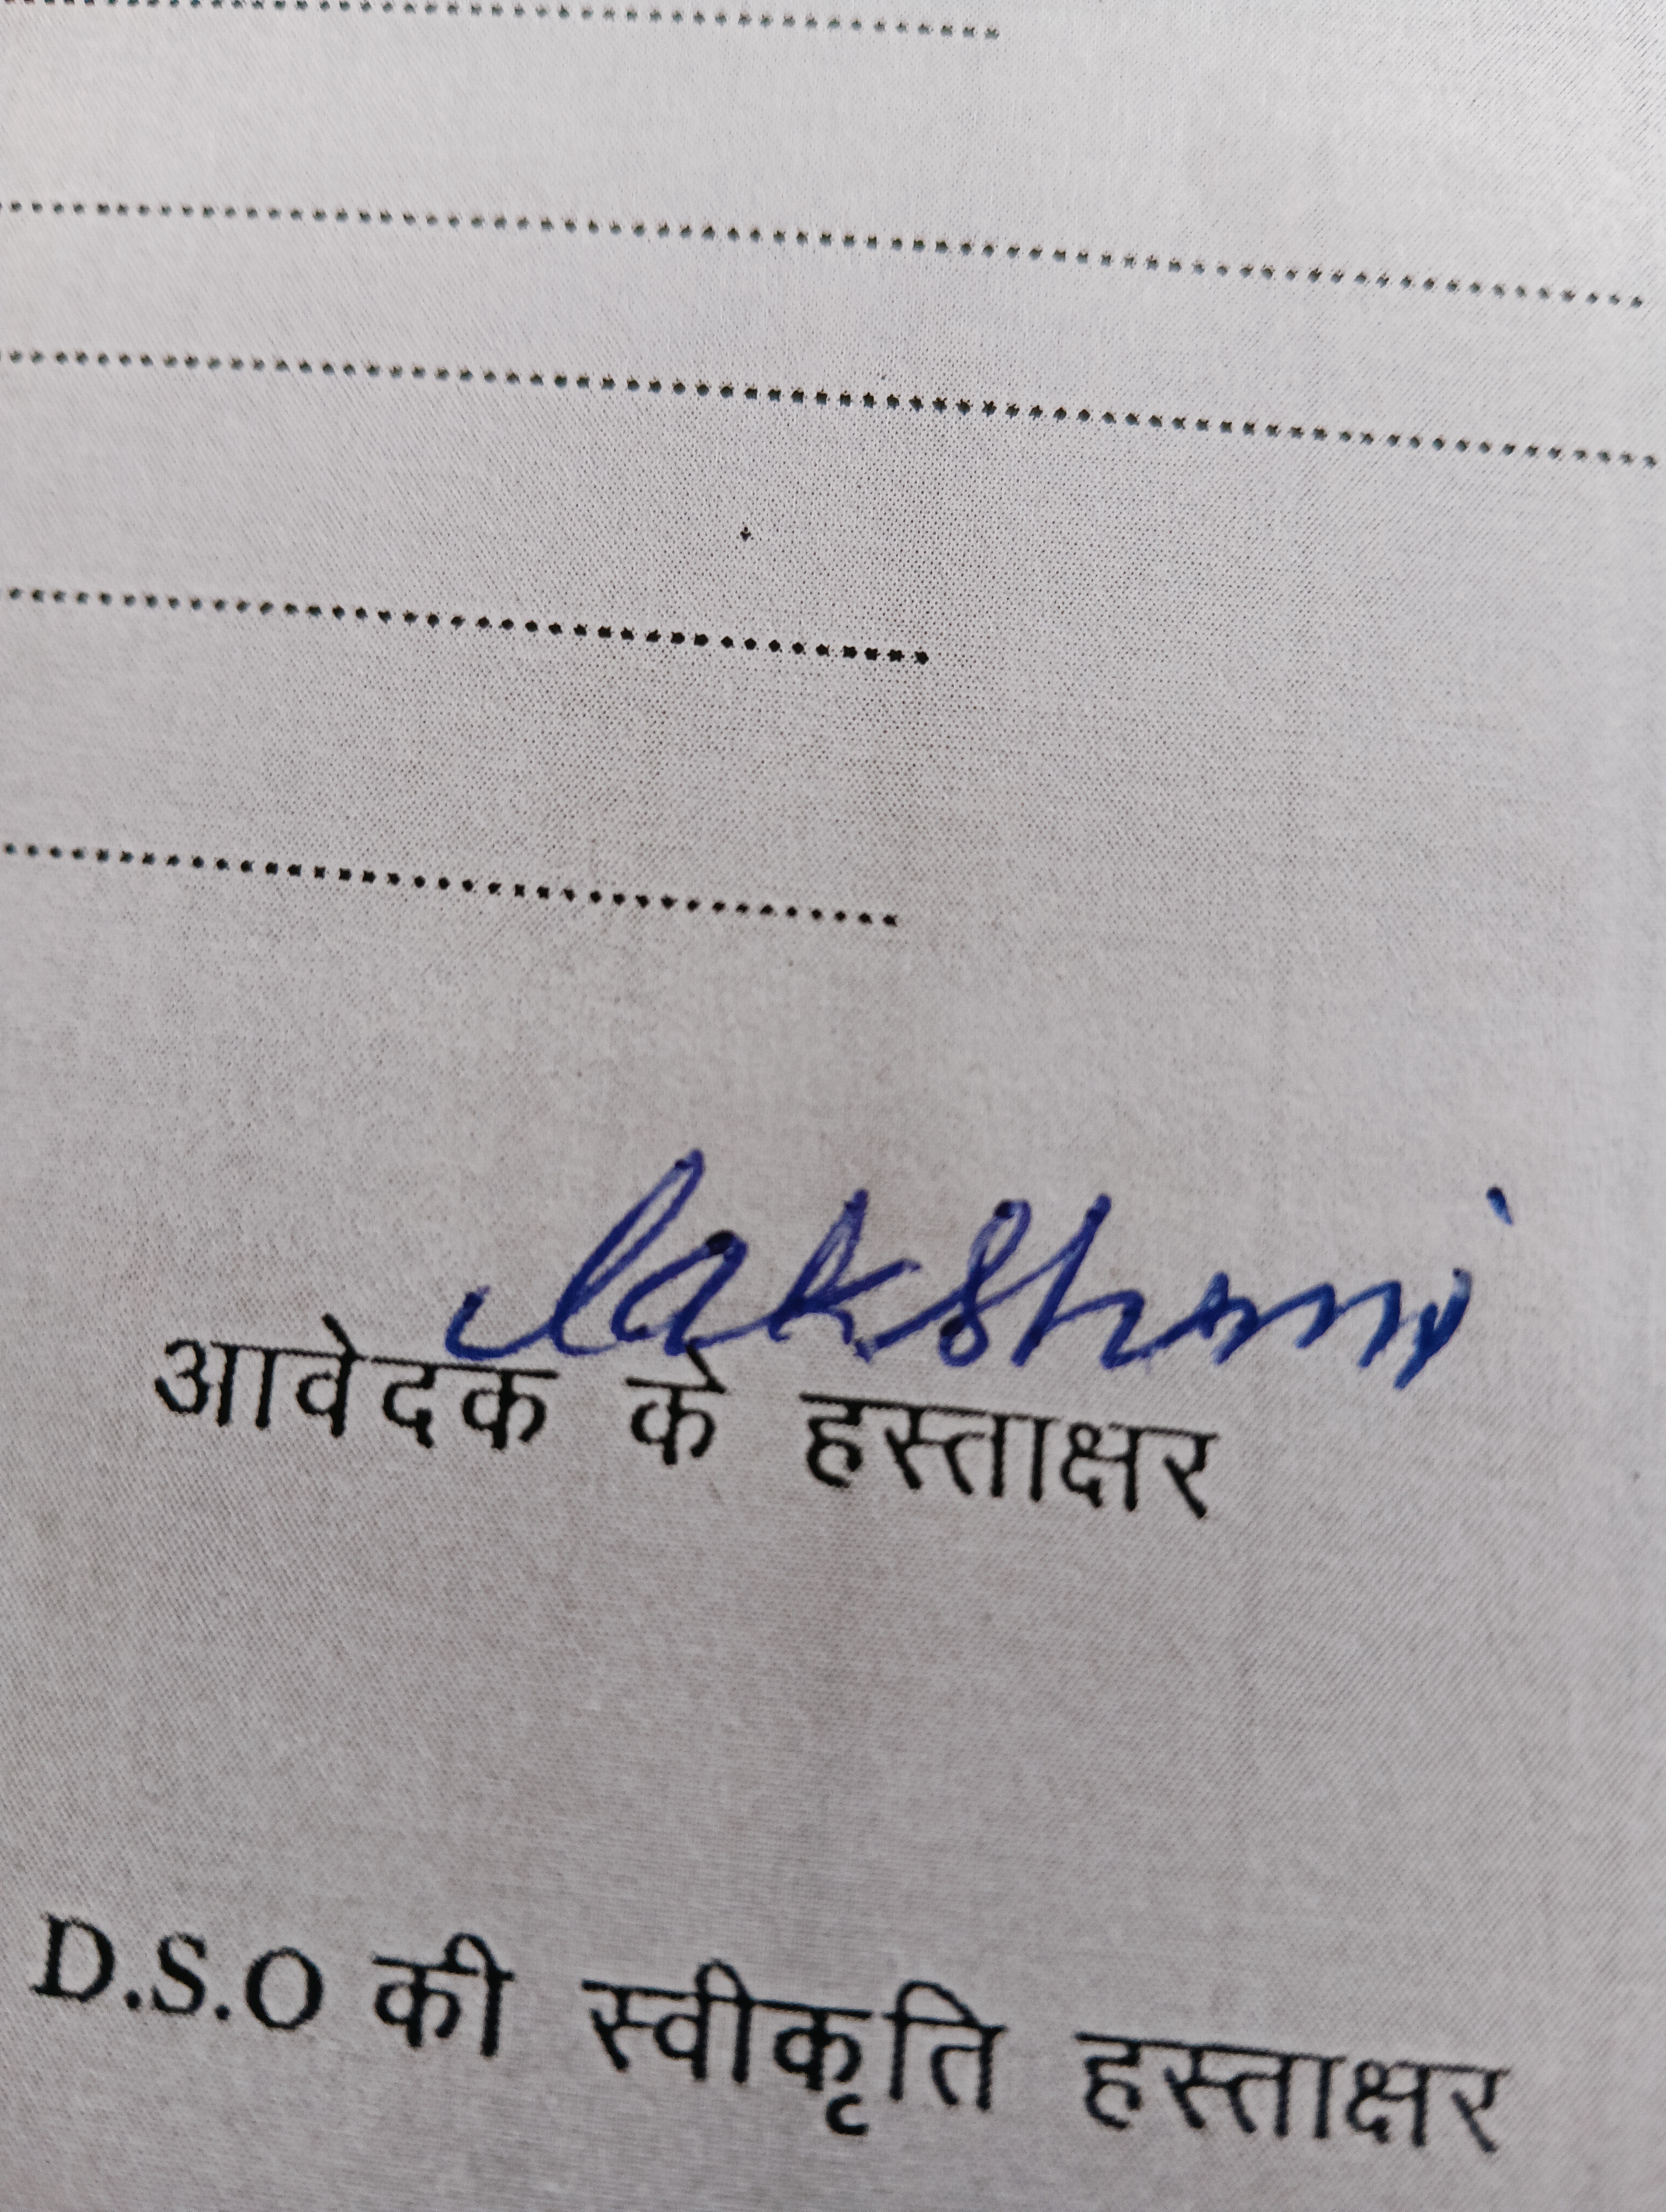 lakshmi
आवेदक के हस्ताक्षर
D.S.O की स्वीकृति हस्ताक्षर